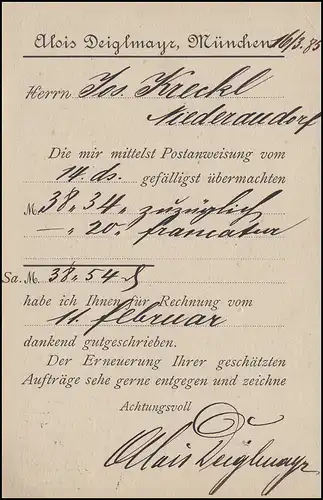 Alois Deiglmayr, München 16/3.85
Herrn Jos. Kreckl
Niederaudorf
Die mir mittelst Postanweisung vom
14 ds. gefälligst übermachten
M. 38.34 „ zuzüglich
— „ 20 „ francatur
Sa. M. 38.54 ₰
habe ich Ihnen für Rechnung vom
11. februar
dankend gutgeschrieben.
Der Erneuerung Ihrer geschätzten
Aufträge sehe gerne entgegen und zeichne
Achtungsvoll
Alois Deiglmayr